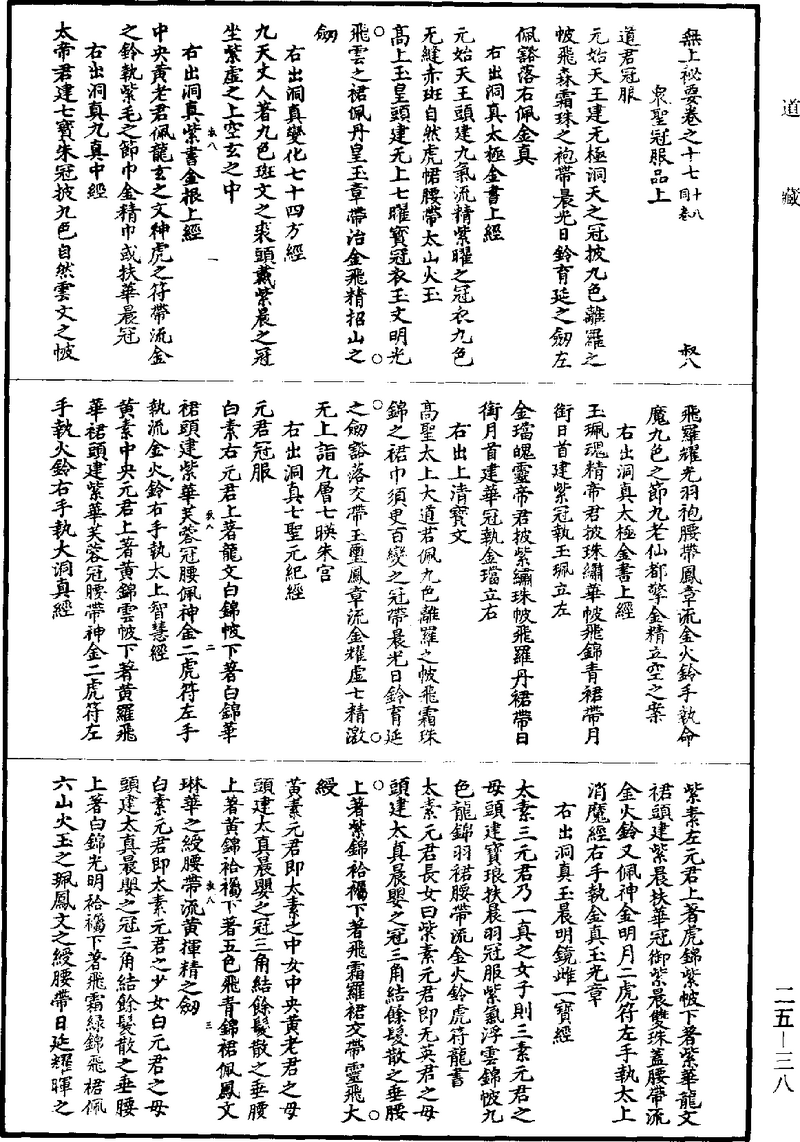 道藏
無上祕要卷之十七 十八同卷 叔八
衆聖冠服品上
道君冠服
元始天王建无極洞天之冠披九色離羅之
帔飛森霜珠之袍帶晨光日鈴育延之劒左
佩豁落右佩金真
右出洞真太極金書上經
元始天王頭建九氣流精紫曜之冠衣九色
无縫赤班自然虎帬腰帶太山火玉
高上玉皇頭建无上七曜寶冠衣玉文明光
飛雲之裙佩丹皇玉章帶治金飛精招山之
劒
右出洞真變化七十四方經
九天丈人著九色斑文之裘頭戴紫晨之冠
坐紫虛之上空玄之中
右出洞真紫書金根上經
中央黃老君佩龍玄之文神虎之符帶流金
之鈴執紫毛之節巾金精巾或扶華晨冠
右出洞真九真中經
太帝君建七寶朱冠披九色自然雲文之帔
飛羅耀光羽袍腰帶鳳章流金火鈴手執命
魔九色之節九老仙都擎金精立空之案
右出洞真太極金書上經
玉珮魂精帝君披珠繡華帔飛錦青裙帶月
銜日首建紫冠執玉珮立左
金璫魄靈帝君披紫繡珠帔飛羅丹裙帶日
銜月首建華冠執金璫立右
右出上清寶文
高聖太上大道君佩九色離羅之帔飛霜珠
錦之裙巾須臾百變之冠帶晨光日鈴育延
之劒豁落交帶玉璽鳳章流金耀虛七精激
无上詣九層七暎朱宮
右出洞真七聖元紀經
元君冠服
白素右元君上著龍文白錦帔下著白錦華
裙頭建紫華芙蓉冠腰佩神金二虎符左手
執流金火鈴右手執太上智慧經
黃素中央元君上著黃錦雲帔下著黃羅飛
華裙頭建紫華芙蓉冠腰帶神金二虎符左
手執火鈴右手執大洞真經
紫素左元君上著虎錦紫帔下著紫華龍文
裙頭建紫晨扶華冠御紫晨雙珠蓋腰帶流
金火鈴又佩神金明月二虎符左手執太上
消魔經右手執金真玉光章
右出洞真玉晨明鏡雌一寶經
太素三元君乃一真之女子則三素元君之
母頭建寶琅扶晨羽冠服紫氣浮雲錦帔九
色龍錦羽裙腰帶流金火鈴虎符龍書
太素元君長女曰紫素元君即无英君之母
頭建太真晨嬰之冠三角結餘髮散之垂腰
上著紫錦袷襡下著飛霜羅裙交帶靈飛大
綬
黃素元君即太素之中女中央黃老君之母
頭建太真晨嬰之冠三角結餘髮散之垂腰
上著黃錦袷襡下著五色飛青錦裙佩鳳文
琳華之綬腰帶流黃揮精之劒
白素元君即太素元君之少女白元君之母
頭建太真晨嬰之冠三角結餘髮散之垂腰
上著白錦光明袷襡下著飛霜緑錦飛裙佩
六山火玉之珮鳳文之綬腰帶日延耀暉之
叔八 一
叔八 二
叔八 三
二五—三八